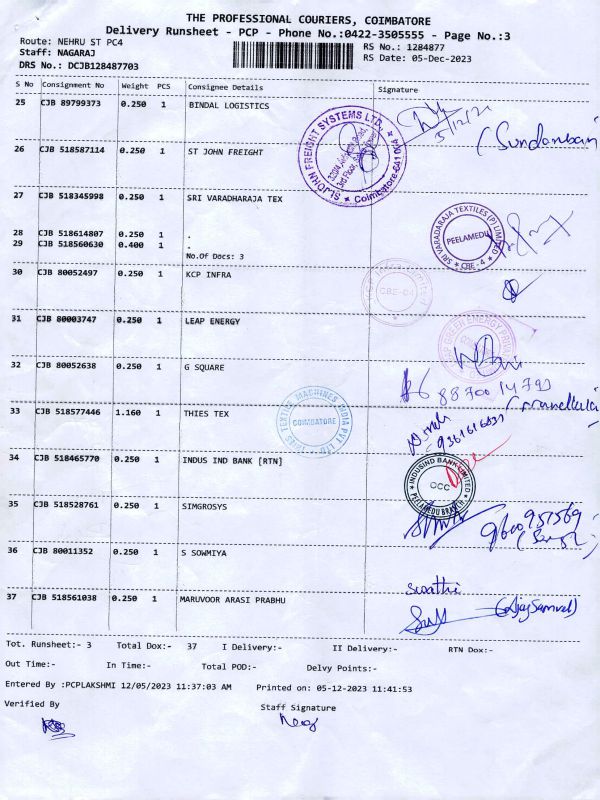 THE PROFESSIONAL COURIERS, COIMBATORE
Delivery Runsheet - PCP - Phone No.:0422-3505555 - Page No.:3
Route: NEHRU ST PC4
RS No.: 1284877
Staff: NAGARAJ
RS Date: 05-Dec-2023
DRS No.: DCJB128487703
S No Consignment No Weight PCS Consignee Details Signature
25 CJB 89799373 0.250 1 BINDAL LOGISTICS
5/12/2
26 CJB 518587114 0.250 1 ST JOHN FREIGHT
STJOHN FREIGHT SYSTEMS LTD.
3rd Floor,
Coimbatore-641
27 CJB 518345998 0.250 1 SRI VARADHARAJA TEX
SRI VARADARAJA TEXTILES (P) LIMITED
PEELAMEDU
CBE - 4
28 CJB 518614807 0.250 1 .
29 CJB 518560630 0.400 1 .
No.Of Docs: 3
30 CJB 80052497 0.250 1 KCP INFRA
CBE-04
31 CJB 80003747 0.250 1 LEAP ENERGY
GREEN ENERGY PRIVATE
32 CJB 80052638 0.250 1 G SQUARE
33 CJB 518577446 1.160 1 THIES TEX
TEXTILE MACHINES INDIA PVT LTD
COIMBATORE
34 CJB 518465770 0.250 1 INDUS IND BANK [RTN]
INDUSIND BANK LIMITED
OCC
PEELAMEDU BRANCH
35 CJB 518528761 0.250 1 SIMGROSYS
36 CJB 80011352 0.250 1 S SOWMIYA
swathi
37 CJB 518561038 0.250 1 MARUVOOR ARASI PRABHU
(Ajay Samuel)
Tot. Runsheet:- 3 Total Dox:- 37 I Delivery:- II Delivery:- RTN Dox:-
Out Time:- In Time:- Total POD:- Delvy Points:-
Entered By :PCPLAKSHMI 12/05/2023 11:37:03 AM Printed on: 05-12-2023 11:41:53
Verified By Staff Signature